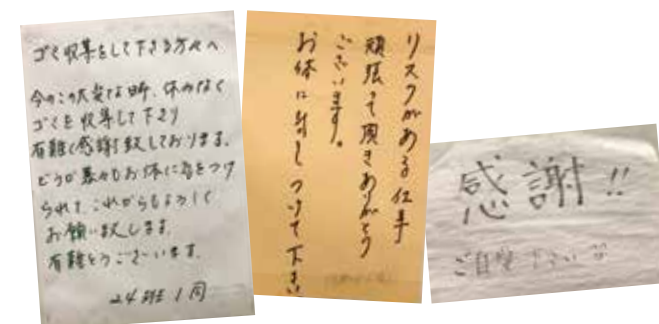 ゴミ収集をして下さる方々へ
今のこの大変な時、休みなく
ゴミを収集して下さり
有難く感謝致しております。
どうか皆々もお体に気をつけ
られて、これからもよろしく
お願い致します。
有難とうございます。
24班1同
リスクがある仕事
頑張って頂きありがとう
ございます。
お体に気をつけて下さい
感謝!!
ご自愛下さい